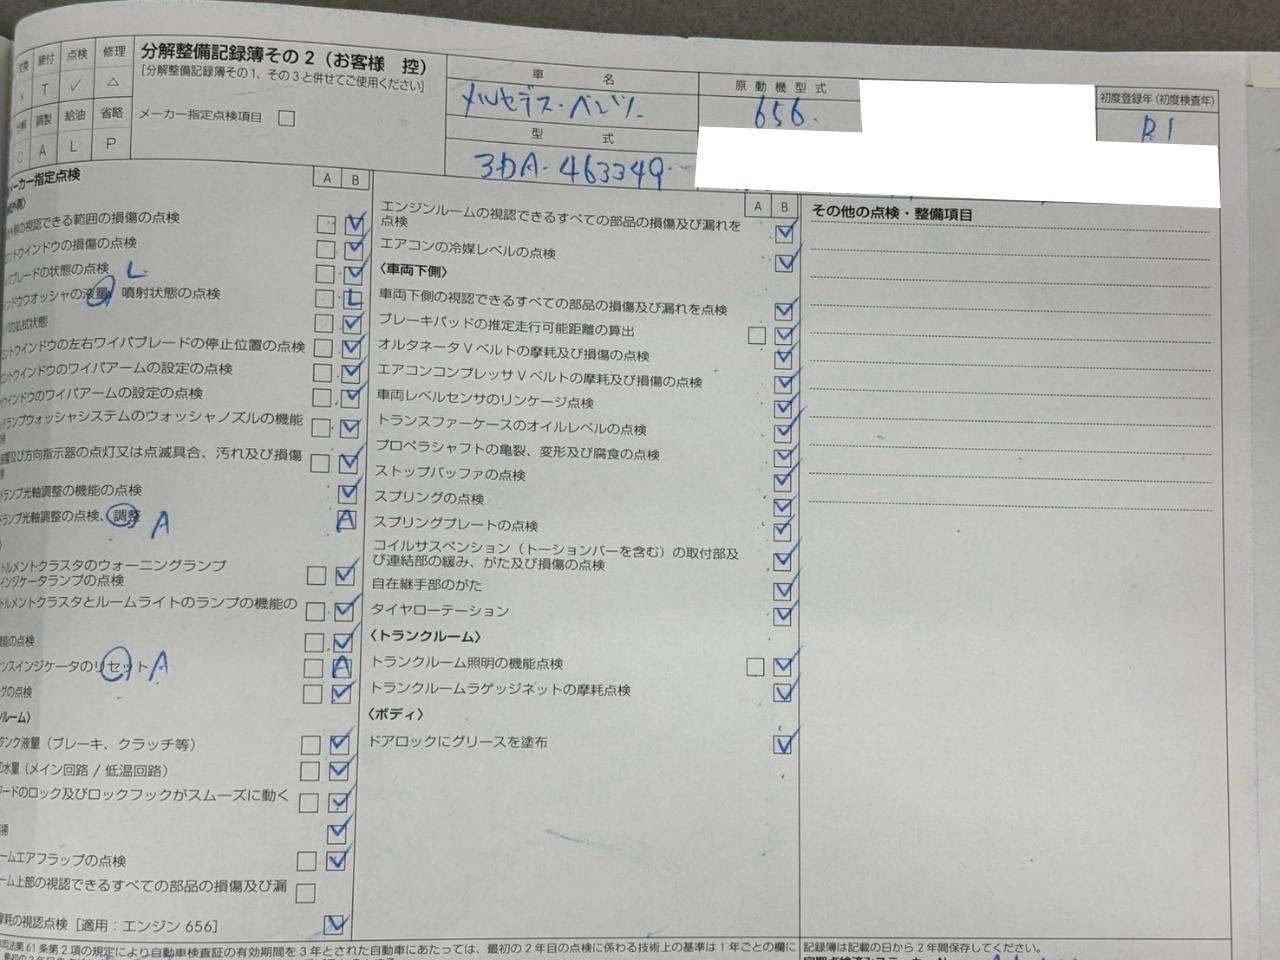 締付 点検 修理
T ✓ △
調製 給油 省略
A L P
分解整備記録簿その2(お客様 控)
[分解整備記録簿その1、その3と併せてご使用ください]
メーカー指定点検項目 □
車 名
メルセデス・ベンツ
型 式
3DA-463349
原動機型式
656
初度登録年(初度検査年)
R1
メーカー指定点検
A B
視認できる範囲の損傷の点検
ウインドウの損傷の点検
ブレードの状態の点検 L
ウインドウウオッシャの液量、噴射状態の点検 L
払拭状態
ントウインドウの左右ワイパブレードの停止位置の点検
ントウインドウのワイパアームの設定の点検
ウインドウのワイパアームの設定の点検
ドランプウォッシャシステムのウォッシャノズルの機能
及び方向指示器の点灯又は点滅具合、汚れ及び損傷
ドランプ光軸調整の機能の点検
ドランプ光軸調整の点検、調整 A A
トルメントクラスタのウォーニングランプ
インジケータランプの点検
トルメントクラスタとルームライトのランプの機能の
機能の点検
ンスインジケータのリセット A A
グの点検
ンルーム〉
タンク液量(ブレーキ、クラッチ等)
の水量(メイン回路/低温回路)
フードのロック及びロックフックがスムーズに動く
ームエアフラップの点検
ーム上部の視認できるすべての部品の損傷及び漏
摩耗の視認点検 [適用:エンジン656]
A B
エンジンルームの視認できるすべての部品の損傷及び漏れを
点検
エアコンの冷媒レベルの点検
〈車両下側〉
車両下側の視認できるすべての部品の損傷及び漏れを点検
ブレーキパッドの推定走行可能距離の算出
オルタネータVベルトの摩耗及び損傷の点検
エアコンコンプレッサVベルトの摩耗及び損傷の点検
車両レベルセンサのリンケージ点検
トランスファーケースのオイルレベルの点検
プロペラシャフトの亀裂、変形及び腐食の点検
ストップバッファの点検
スプリングの点検
スプリングプレートの点検
コイルサスペンション(トーションバーを含む)の取付部及
び連結部の緩み、がた及び損傷の点検
自在継手部のがた
タイヤローテーション
〈トランクルーム〉
トランクルーム照明の機能点検
トランクルームラゲッジネットの摩耗点検
〈ボディ〉
ドアロックにグリースを塗布
その他の点検・整備項目
両法第61条第2項の規定により自動車検査証の有効期間を3年とされた自動車にあたっては、最初の2年目の点検に係わる技術上の基準は1年ごとの欄に
記録簿は記載の日から2年間保存してください。